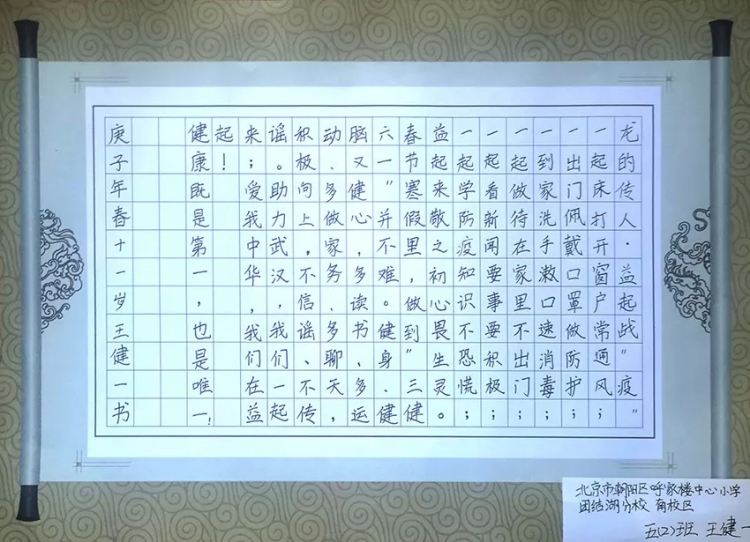 龙的传人·益起战"疫"
一起床打开窗户常通风；
一出门佩戴口罩做防护；
一到家洗手漱口速消毒；
一起做待在家里不出门；
一起看新闻要事要积极；
一起学防疫知识不恐慌；
益起来敬之初心畏生灵。
春节寒假里，做到"三健
六一"并不难。健身、健
脑又健心，多读书、多运
动、多做家务、多聊天，
积极向上，不信谣、不传
谣。助力武汉，我们一起
来；爱我中华，我们在益
起！
健康既是第一，也是唯一！
庚子年春十一岁王健一书
北京市朝阳区呼家楼中心小学
团结湖分校 南校区
五(2)班 王健一